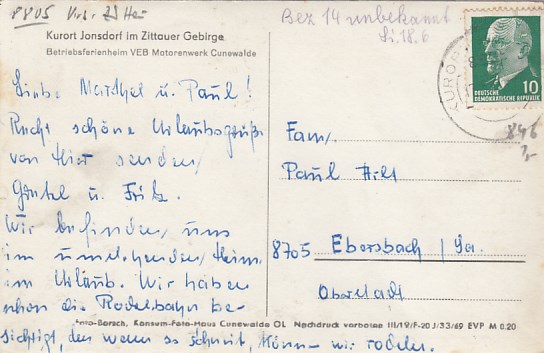 8805
Bez 14 unbekannt
Si. 18.6
Kurort Jonsdorf im Zittauer Gebirge
Betriebsferienheim VEB Motorenwerk Cunewalde
DEUTSCHE
DEMOKRATISCHE REPUBLIK
10
KURORT
Liebe u. Paul!
Recht schöne Urlaubsgrüße
von hier senden
u. Fritz.
Wir befinden uns
im umstehenden Heim
im Urlaub. Wir haben
schon die Rodelbahn be-
sichtigt, denn wenn es schneit, können wir rodeln.
Fam.
Paul
8705 Ebersbach/Sa.
Oberstadt
Foto-Borsch, Konsum-Foto-Haus Cunewalde OL Nachdruck verboten III/19/F-20 J/33/69 EVP M 0.20